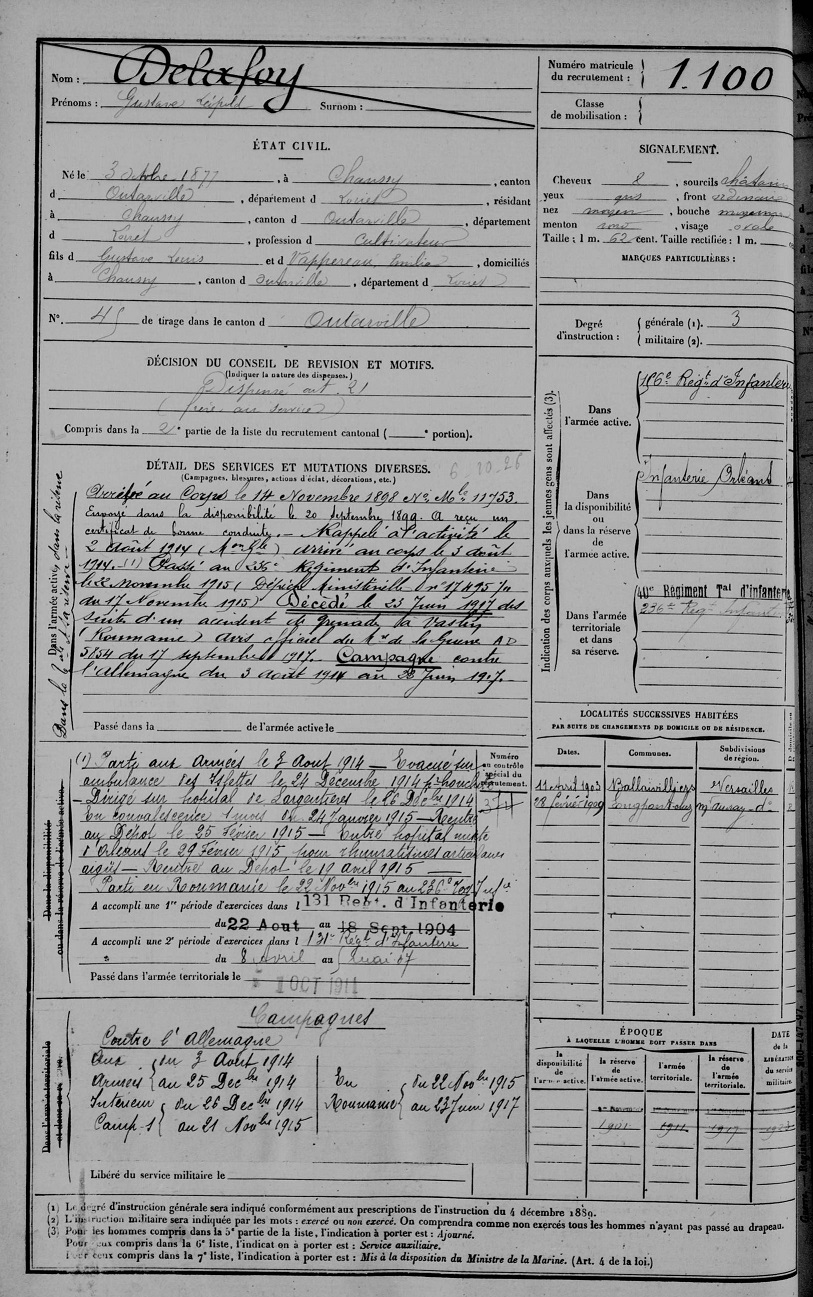 Nom : Delafoy
Prénoms : Gustave Léopold Surnom :
Numéro matricule du recrutement : 1.100
Classe de mobilisation :
ÉTAT CIVIL.
Né le 3 octobre 1877, à Chaussy, canton
d Outarville, département d Loiret, résidant
à Chaussy, canton d Outarville, département
d Loiret, profession d cultivateur
fils d Gustave Louis et d Vappereau, Emilie, domiciliés
à Chaussy, canton d Outarville, département d Loiret
N°. 45 de tirage dans le canton d Outarville
SIGNALEMENT.
Cheveux , sourcils châtain
yeux gris, front ordinaire
nez moyen, bouche moyenne
menton rond, visage ovale
Taille : 1 m. 62 cent. Taille rectifiée : 1 m.
MARQUES PARTICULIÈRES :
Degré d'instruction : générale (1). 3
militaire (2).
DÉCISION DU CONSEIL DE REVISION ET MOTIFS.
(Indiquer la nature des dispenses.)
Dispensé art. 21
(frère au service)
Compris dans la 2e partie de la liste du recrutement cantonal ( e portion).
DÉTAIL DES SERVICES ET MUTATIONS DIVERSES.
(Campagnes, blessures, actions d'éclat, décorations, etc.)
6.10.26
Dans l'armée active, dans la réserve
au Corps le 14 Novembre 1898 No Mle 11753.
Envoyé dans la disponibilité le 20 septembre 1899. A reçu un
certificat de bonne conduite. — Rappelé à l'activité le
2 août 1914 (Mon Gle) arrivé au corps le 3 août
1914. (1) Passé au 236e Régiment d'Infanterie
le 22 novembre 1915 (Dépêche Ministérielle no 17495
du 17 Novembre 1915) Décédé le 23 Juin 1917 des
suites d'un accident de grenade à
(Roumanie) avis officiel du Mre de la Guerre AD
5854 du 17 septembre 1917. Campagne contre
l'Allemagne du 3 août 1914 au 23 Juin 1917.
Passé dans la de l'armée active le
Indication des corps auxquels les jeunes gens sont affectés (3).
Dans l'armée active. Regt d'Infanterie
Dans la disponibilité ou dans la réserve de l'armée active. Infanterie Orléans
Dans l'armée territoriale et dans sa réserve. 40e Régiment Tal d'infanterie
236e Regt Infant
LOCALITÉS SUCCESSIVES HABITÉES
PAR SUITE DE CHANGEMENTS DE DOMICILE OU DE RÉSIDENCE.
Dates. Communes. Subdivisions de région.
11 avril 1903 Ballainvilliers Versailles
28 février 1909 Longpont
Dans la disponibilité ou dans la réserve de l'armée active.
(1) Parti aux armées le 3 Août 1914 — Evacué sur
ambulance des Islettes le 24 Décembre 1914
— Dirigé sur hôpital de Largentières le 26 Décbre 1914
En convalescence 1 mois du 24 Janvier 1915 — Rentré
au Dépôt le 25 Février 1915 — Entré hôpital mixte
d'Orléans le 29 Février 1915 pour rhumatismes articulaires
aigüs — Rentré au Dépôt le 19 avril 1915
Parti en Roumanie le 22 Novbre 1915 au 236e
Numéro au contrôle spécial du recrutement.
A accompli une 1re période d'exercices dans l 131 Regt. d'Infanterie
du 22 Aout au 18 Sept. 1904
A accompli une 2e période d'exercices dans l 131e Regt d'Infanterie
du 8 Avril au Mai 07
Passé dans l'armée territoriale le 1 OCT 1911
Dans l'armée territoriale et dans sa réserve.
Campagnes
Contre l'Allemagne
Aux Armées du 3 Août 1914
au 25 Décbre 1914
Intérieur du 26 Décbre 1914
Camp-1 au 21 Novbre 1915
En Roumanie du 22 Novbre 1915
au 23 Juin 1917
Libéré du service militaire le
ÉPOQUE
À LAQUELLE L'HOMME DOIT PASSER DANS
la disponibilité de l'armée active. la réserve de l'armée active. l'armée territoriale. la réserve de l'armée territoriale.
DATE de la LIBÉRATION du service militaire.
1901 1911 1917
(1) Le degré d'instruction générale sera indiqué conformément aux prescriptions de l'instruction du 4 décembre 1889.
(2) L'instruction militaire sera indiquée par les mots : exercé ou non exercé. On comprendra comme non exercés tous les hommes n'ayant pas passé au drapeau.
(3) Pour les hommes compris dans la 5e partie de la liste, l'indication à porter est : Ajourné.
Pour ceux compris dans la 6e liste, l'indication à porter est : Service auxiliaire.
Pour ceux compris dans la 7e liste, l'indication à porter est : Mis à la disposition du Ministre de la Marine. (Art. 4 de la loi.)